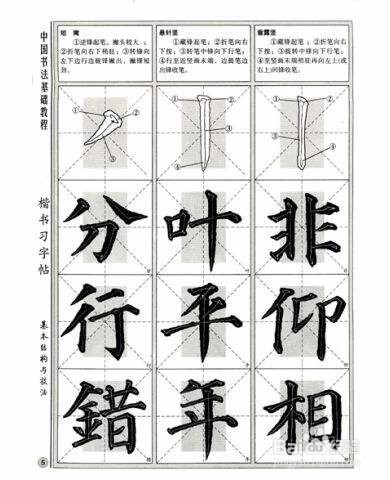 中国书法基础教程
楷书习字帖
基本结构与技法
5
短 撇
①逆锋起笔，撇头较大；
②折笔向右下稍驻；③转锋向
左下边行边提锋撇出，撇锋短
劲。
悬针竖
①藏锋起笔；②折笔向右
下按；③转笔中锋向下行笔；
④行至竖画末端，边提笔边
出锋收笔。
垂露竖
①藏锋起笔；②折笔向右
下按；③提转中锋向下行笔；
④至竖画末端稍驻再向左上(或
右上)回锋收笔。
① ② ③
① ② ③ ④
① ② ③ ④
分 叶 非
行 平 仰
錯 年 相
Baidu经验
jingyan.baidu.com